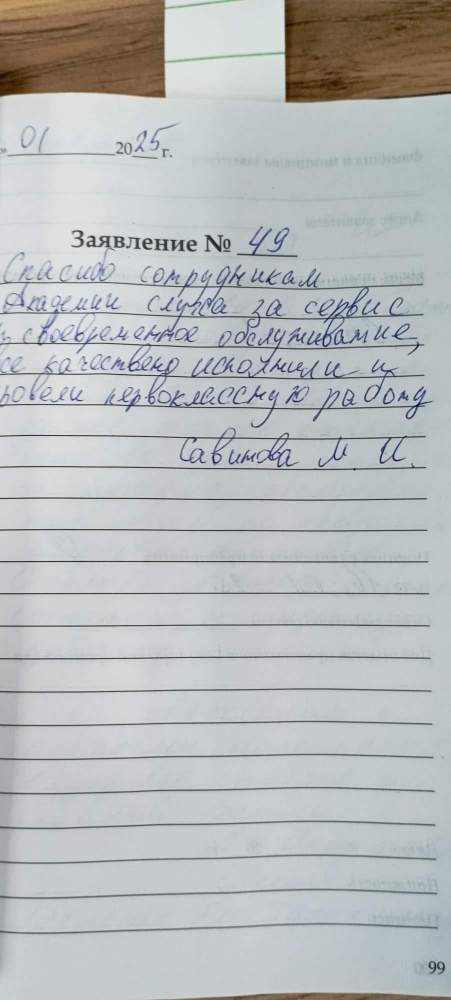 " 01 2025 г.
Заявление № 49
Спасибо сотрудникам
Академии слуха за сервис
и своевременное обслуживание,
все качествено исполнили и
ровели первоклассную работу
Савинова М. И.
99